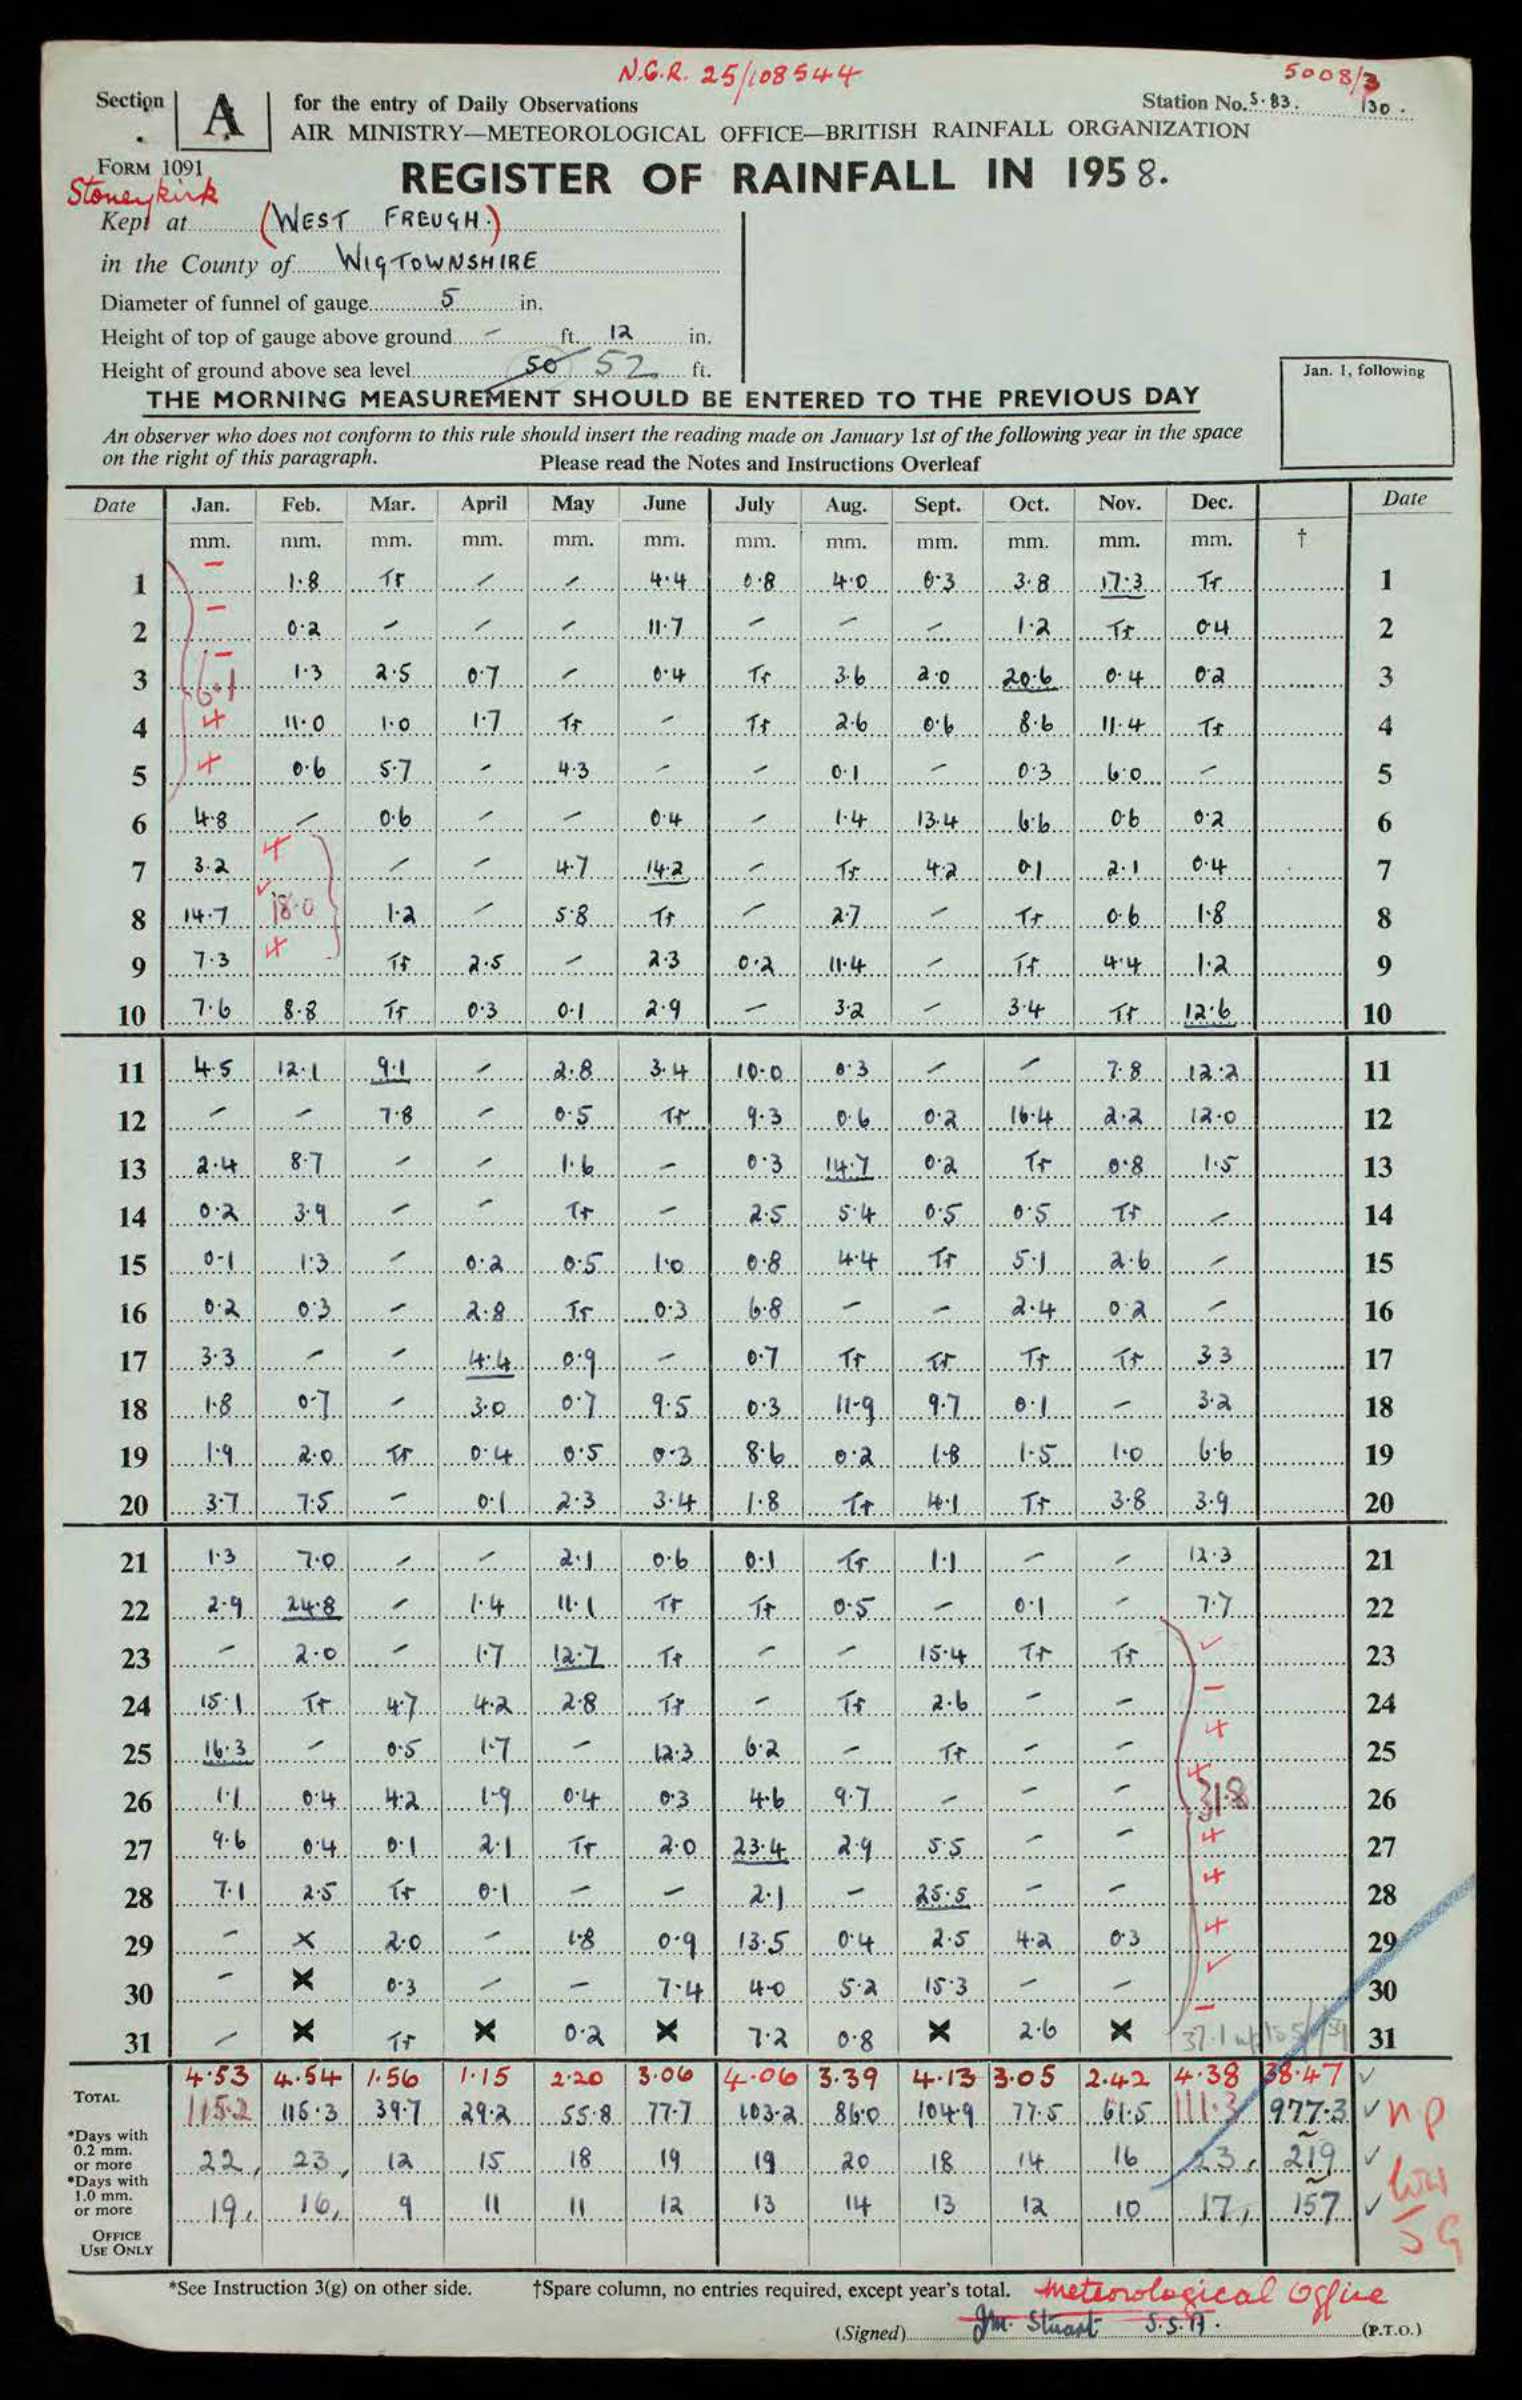 N.G.R. 25/108544
5008/3
Section A for the entry of Daily Observations Station No. S.83. 130.
AIR MINISTRY—METEOROLOGICAL OFFICE—BRITISH RAINFALL ORGANIZATION
FORM 1091 REGISTER OF RAINFALL IN 1958.
Stoneykirk
Kept at (WEST FREUGH.)
in the County of WIGTOWNSHIRE
Diameter of funnel of gauge 5 in.
Height of top of gauge above ground - ft. 12 in.
Height of ground above sea level 50 52 ft.
Jan. 1, following
THE MORNING MEASUREMENT SHOULD BE ENTERED TO THE PREVIOUS DAY
An observer who does not conform to this rule should insert the reading made on January 1st of the following year in the space
on the right of this paragraph. Please read the Notes and Instructions Overleaf
Date Jan. Feb. Mar. April May June July Aug. Sept. Oct. Nov. Dec. Date
mm. mm. mm. mm. mm. mm. mm. mm. mm. mm. mm. mm. †
1 - 1.8 Tr - - 4.4 0.8 4.0 0.3 3.8 17.3 Tr 1
2 - 0.2 - - - 11.7 - - - 1.2 Tr 0.4 2
3 - 1.3 2.5 0.7 - 0.4 Tr 3.6 2.0 20.6 0.4 0.2 3
4 + 11.0 1.0 1.7 Tr - Tr 2.6 0.6 8.6 11.4 Tr 4
5 + 0.6 5.7 - 4.3 - - 0.1 - 0.3 6.0 - 5
6 4.8 - 0.6 - - 0.4 - 1.4 13.4 6.6 0.6 0.2 6
7 3.2 + - - 4.7 14.2 - Tr 4.2 0.1 2.1 0.4 7
8 14.7 ✓ 18.0 1.2 - 5.8 Tr - 2.7 - Tr 0.6 1.8 8
9 7.3 + Tr 2.5 - 2.3 0.2 11.4 - Tr 4.4 1.2 9
10 7.6 8.8 Tr 0.3 0.1 2.9 - 3.2 - 3.4 Tr 12.6 10
11 4.5 12.1 9.1 - 2.8 3.4 10.0 0.3 - - 7.8 12.2 11
12 - - 7.8 - 0.5 Tr 9.3 0.6 0.2 16.4 2.2 12.0 12
13 2.4 8.7 - - 1.6 - 0.3 14.7 0.2 Tr 0.8 1.5 13
14 0.2 3.9 - - Tr - 2.5 5.4 0.5 0.5 Tr - 14
15 0.1 1.3 - 0.2 0.5 1.0 0.8 4.4 Tr 5.1 2.6 - 15
16 0.2 0.3 - 2.8 Tr 0.3 6.8 - - 2.4 0.2 - 16
17 3.3 - - 4.4 0.9 - 0.7 Tr Tr Tr Tr 3.3 17
18 1.8 0.7 - 3.0 0.7 9.5 0.3 11.9 9.7 0.1 - 3.2 18
19 1.9 2.0 Tr 0.4 0.5 0.3 8.6 0.2 1.8 1.5 1.0 6.6 19
20 3.7 7.5 - 0.1 2.3 3.4 1.8 Tr 4.1 Tr 3.8 3.9 20
21 1.3 7.0 - - 2.1 0.6 0.1 Tr 1.1 - - 12.3 21
22 2.9 24.8 - 1.4 11.1 Tr Tr 0.5 - 0.1 - 7.7 22
23 - 2.0 - 1.7 12.7 Tr - - 15.4 Tr Tr ✓ 23
24 15.1 Tr 4.7 4.2 2.8 Tr - Tr 2.6 - - - 24
25 16.3 - 0.5 1.7 - 12.3 6.2 - Tr - - + 25
26 1.1 0.4 4.2 1.9 0.4 0.3 4.6 9.7 - - - + 31.8 26
27 9.6 0.4 0.1 2.1 Tr 2.0 23.4 2.9 5.5 - - + 27
28 7.1 2.5 Tr 0.1 - - 2.1 - 25.5 - - + 28
29 - x 2.0 - 1.8 0.9 13.5 0.4 2.5 4.2 0.3 + 29
30 - x 0.3 - - 7.4 4.0 5.2 15.3 - - ✓ 30
31 - x Tr x 0.2 x 7.2 0.8 x 2.6 x - 37.1 31
4.53 4.54 1.56 1.15 2.20 3.06 4.06 3.39 4.13 3.05 2.42 4.38 38.47 ✓
TOTAL 115.2 115.3 39.7 29.2 55.8 77.7 103.2 86.0 104.9 77.5 61.5 111.3 977.3 ✓ np
*Days with 0.2 mm. or more 22, 23, 12 15 18 19 19 20 18 14 16 23, 219 ✓
*Days with 1.0 mm. or more 19, 16, 9 11 11 12 13 14 13 12 10 17, 157 ✓
OFFICE USE ONLY
*See Instruction 3(g) on other side. †Spare column, no entries required, except year's total. Meteorological Office
(Signed) J.M. Stuart S.S.A. (P.T.O.)